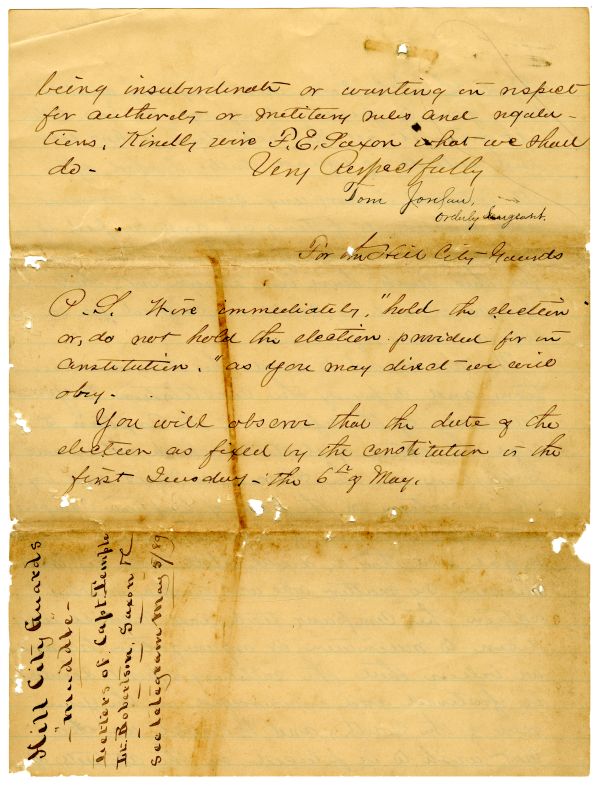 being insubordinate or wanting in respect
for authority or military rules and regula-
tions. Kindly wire P. E. Saxon what we shall
do - Very Respectfully
Tom Jordan,
Orderly Sergeant.
For the Hill City Guards
P.S. Wire immediately, "hold the election
or, do not hold the election provided for in
constitution." as you may direct we will
obey.
You will observe that the date of the
election as fixed by the constitution is the
first Tuesday - the 6th of May.
Hill City Guards
"Muddle" -
Letters of Capt Temple
Lt. Robertson, Saxon &c
See telegram May 5/89